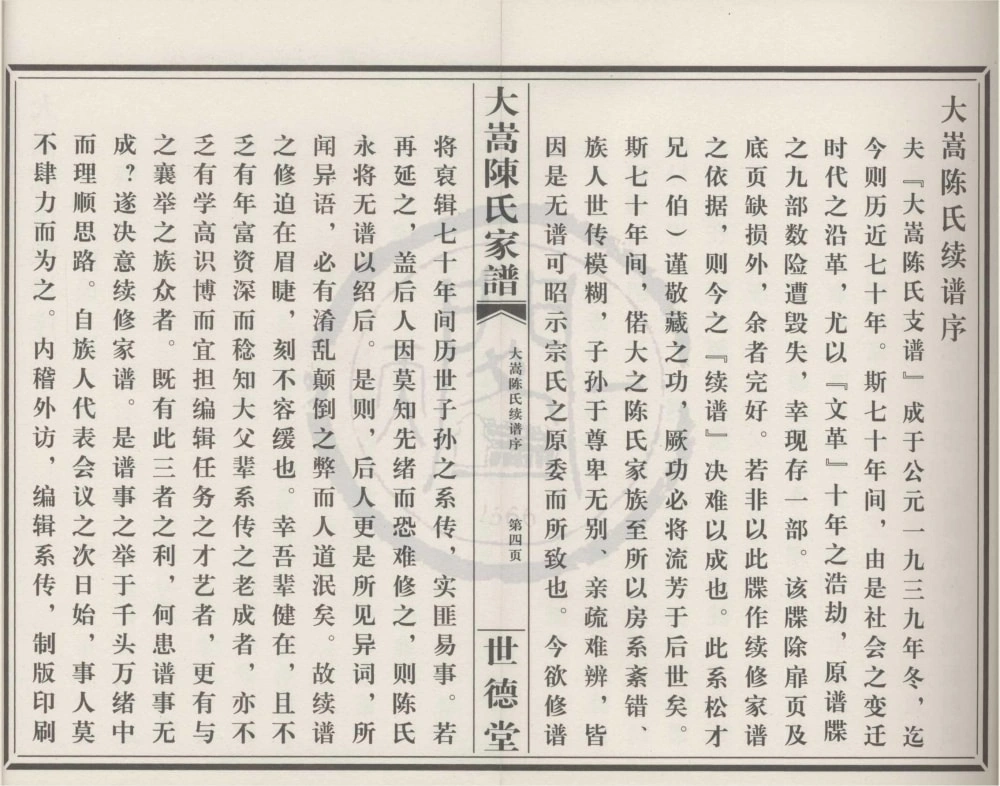 大嵩陈氏续谱序
夫『大嵩陈氏支谱』成于公元一九三九年冬，迄
今则历近七十年。斯七十年间，由是社会之变迁
时代之沿革，尤以『文革』十年之浩劫，原谱牒
之九部数险遭毁失，幸现存一部。该牒除扉页及
底页缺损外，余者完好。若非以此牒作续修家谱
之依据，则今之『续谱』决难以成也。此系松才
兄（伯）谨敬藏之功，厥功必将流芳于后世矣。
斯七十年间，偌大之陈氏家族至所以房系紊错、
族人世传模糊，子孙于尊卑无别、亲疏难辨，皆
因是无谱可昭示宗氏之原委而所致也。今欲修谱
大嵩陳氏家譜
大嵩陈氏续谱序
第四页
世德堂
将裒辑七十年间历世子孙之系传，实匪易事。若
再延之，盖后人因莫知先绪而恐难修之，则陈氏
永将无谱以绍后。是则，后人更是所见异词，所
闻异语，必有淆乱颠倒之弊而人道泯矣。故续谱
之修迫在眉睫，刻不容缓也。幸吾辈健在，且不
乏有年富资深而稔知大父辈系传之老成者，亦不
乏有学高识博而宜担编辑任务之才艺者，更有与
之襄举之族众者。既有此三者之利，何患谱事无
成？遂决意续修家谱。是谱事之举于千头万绪中
而理顺思路。自族人代表会议之次日始，事人莫
不肆力而为之。内稽外访，编辑系传，制版印刷
1566